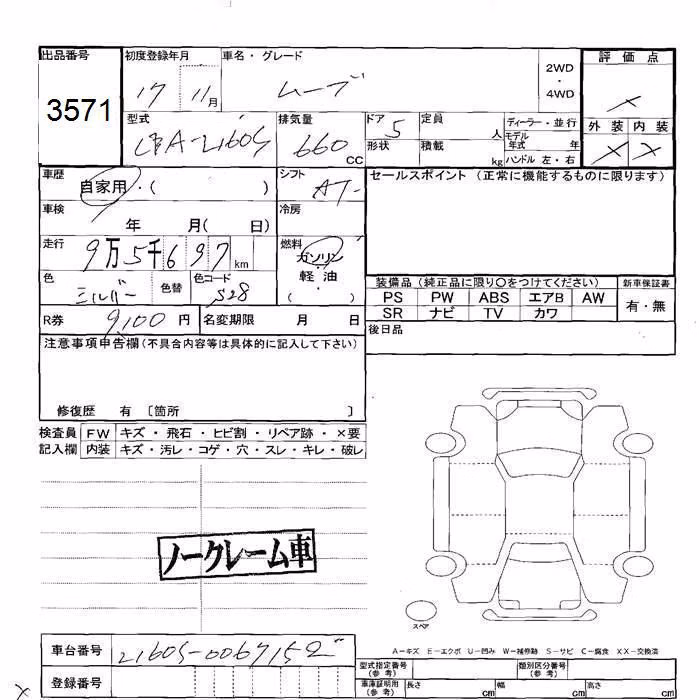 出品番号 初度登録年月 車名・グレード 2WD・4WD 評価点
3571 17 11月 ムーブ ×
型式 排気量 ドア 定員 人 ディーラー・並行 外装 内装
CBA-L160S 660 CC 5 モデル年式 年 × ×
形状 積載 kg ハンドル 左・右
車歴 自家用・( ) シフト AT セールスポイント (正常に機能するものに限ります)
車検 年 月( 日) 冷房
走行 9万5千697 km 燃料 ガソリン
色 シルバー 色替 色コード S28 軽・油 ( )
装備品 (純正品に限り○をつけてください) 新車保証書
PS PW ABS エアB AW 有・無
SR ナビ TV カワ
R券 9,100 円 名変期限 月 日 後日品
注意事項申告欄(不具合内容等は具体的に記入して下さい)
修復歴 有 〔箇所 〕
検査員 FW キズ・飛石・ヒビ割・リペア跡・×要
記入欄 内装 キズ・汚レ・コゲ・穴・スレ・キレ・破レ
ノークレーム車
スペア
A-キズ E-エクボ U-凹み W-補修跡 S-サビ C-腐食 XX-交換済
車台番号 L160S-0067152
登録番号
型式指定番号(参考) 類別区分番号(参考)
車庫証明用(参考) 長さ cm 幅 cm 高さ cm
×